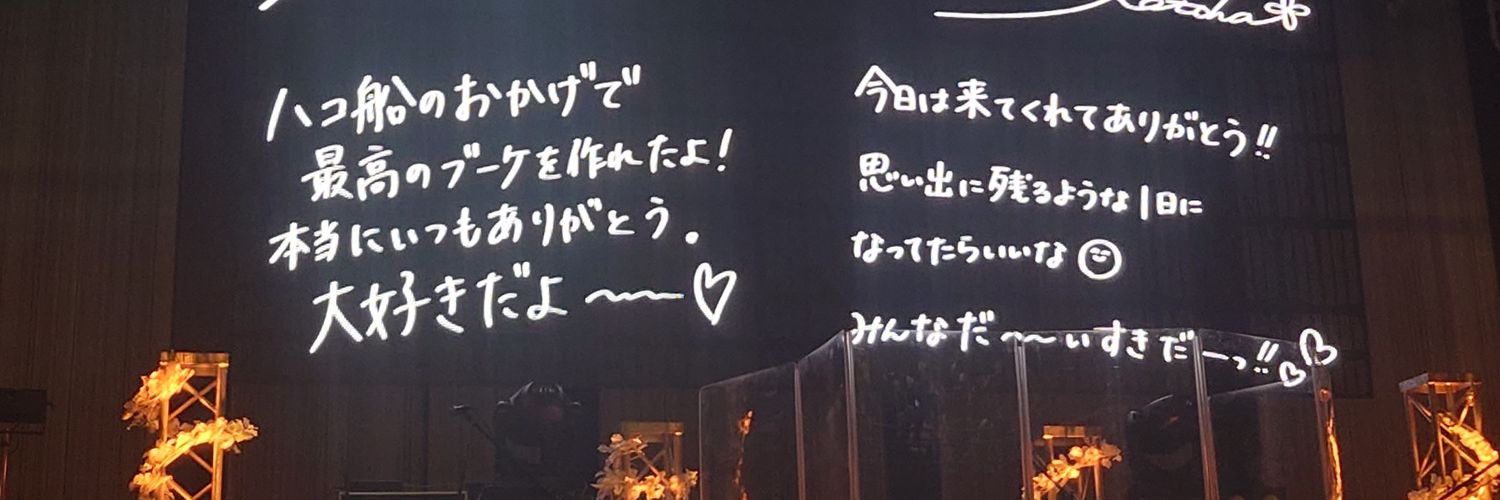 ハコ船のおかげで
最高のブーケを作れたよ!
本当にいつもありがとう。
大好きだよ〜〜♡
Katcha
今日は来てくれてありがとう!!
思い出に残るような1日に
なってたらいいな
みんなだ〜〜いすきだーっ!!♡♡